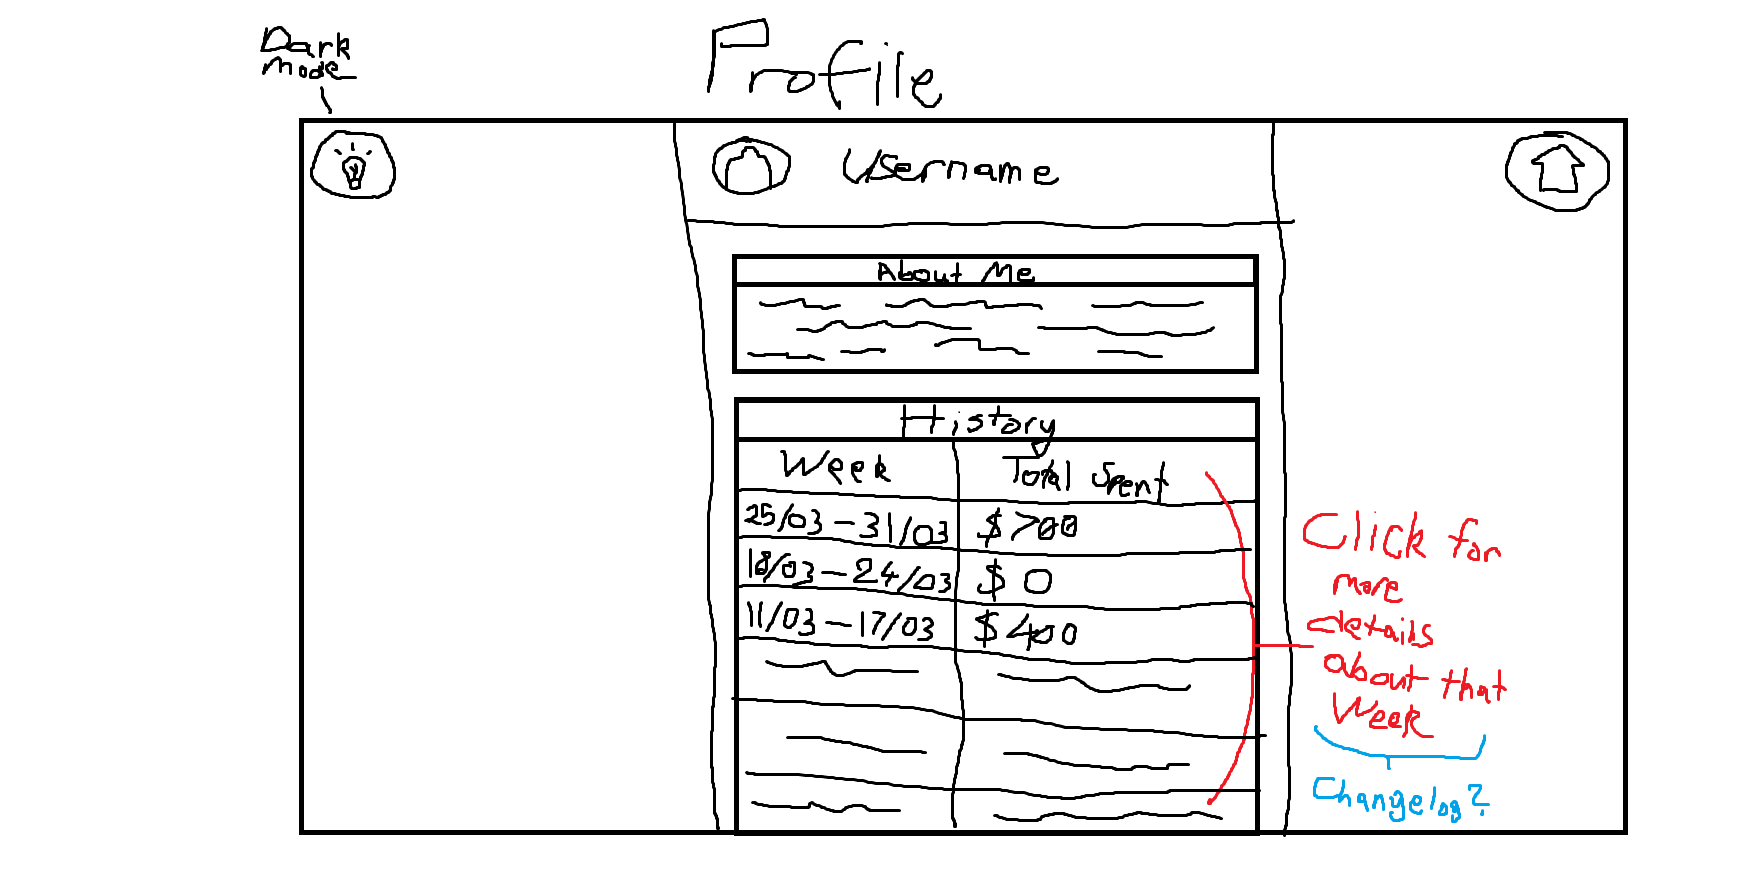 Dark
Mode
Profile
Username
About Me
History
Week
Total Spent
25/03-31/03
$700
18/03-24/03
$0
11/03-17/03
$400
Click for
more
details
about that
Week
Changelog?